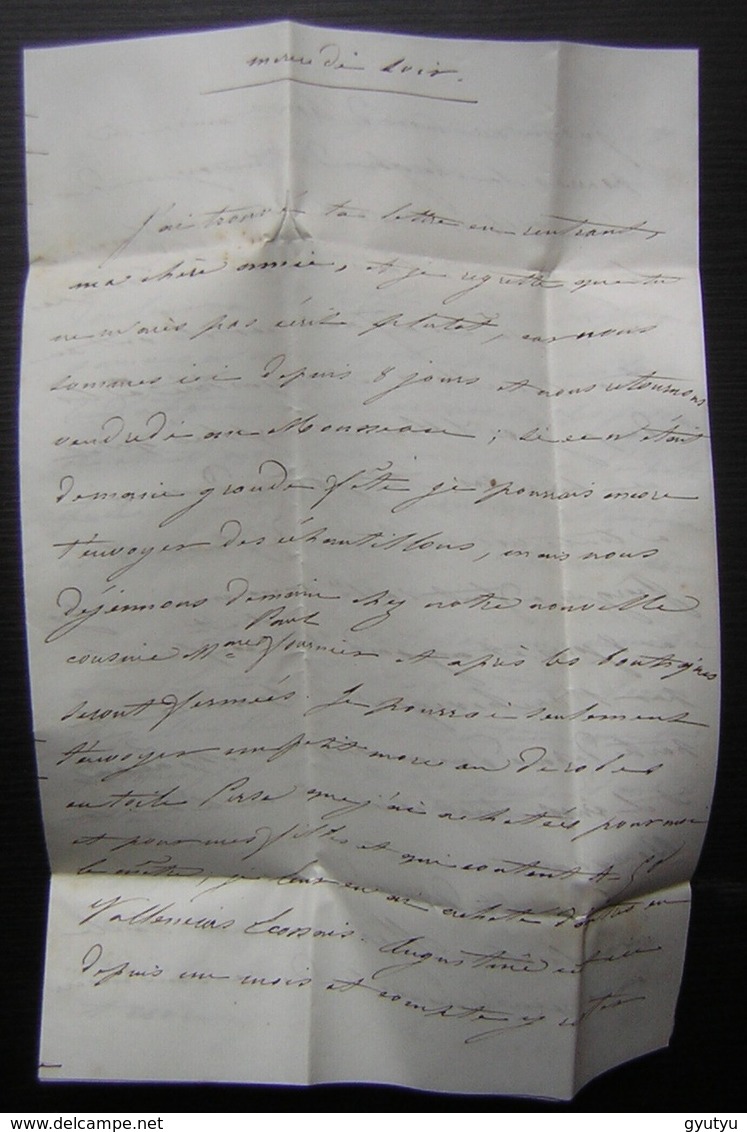 mercredi soir.
J'ai trouvé ta lettre en rentrant,
ma chère amie, et je regrette que tu
ne m'aies pas écrit plutot, car nous
sommes ici depuis 8 jours et nous retournons
vendredi au Mousseau ; si ce n'était
demain grande fête je pourrais encore
t'envoyer des échantillons, mais nous
déjeunons demain chez notre nouvelle
Paul
cousine Mme Fournier et après les boutiques
seront fermées. Je pourrai seulement
t'envoyer un petit morceau de robes
en toile Perse que j'ai achetées pour moi
et pour mes filles et qui coutent
le mètre, je leur en ai acheté d'autres en
Valencias Ecossais. Augustine est ici
depuis un mois et compte y rester
www.delcampe.net
gyutyu